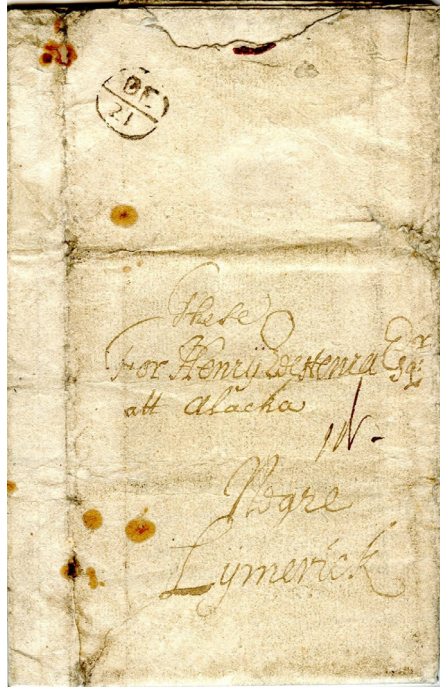 DE
21
These
For Henry Esqr
att Alacka
Neare
Lymerick